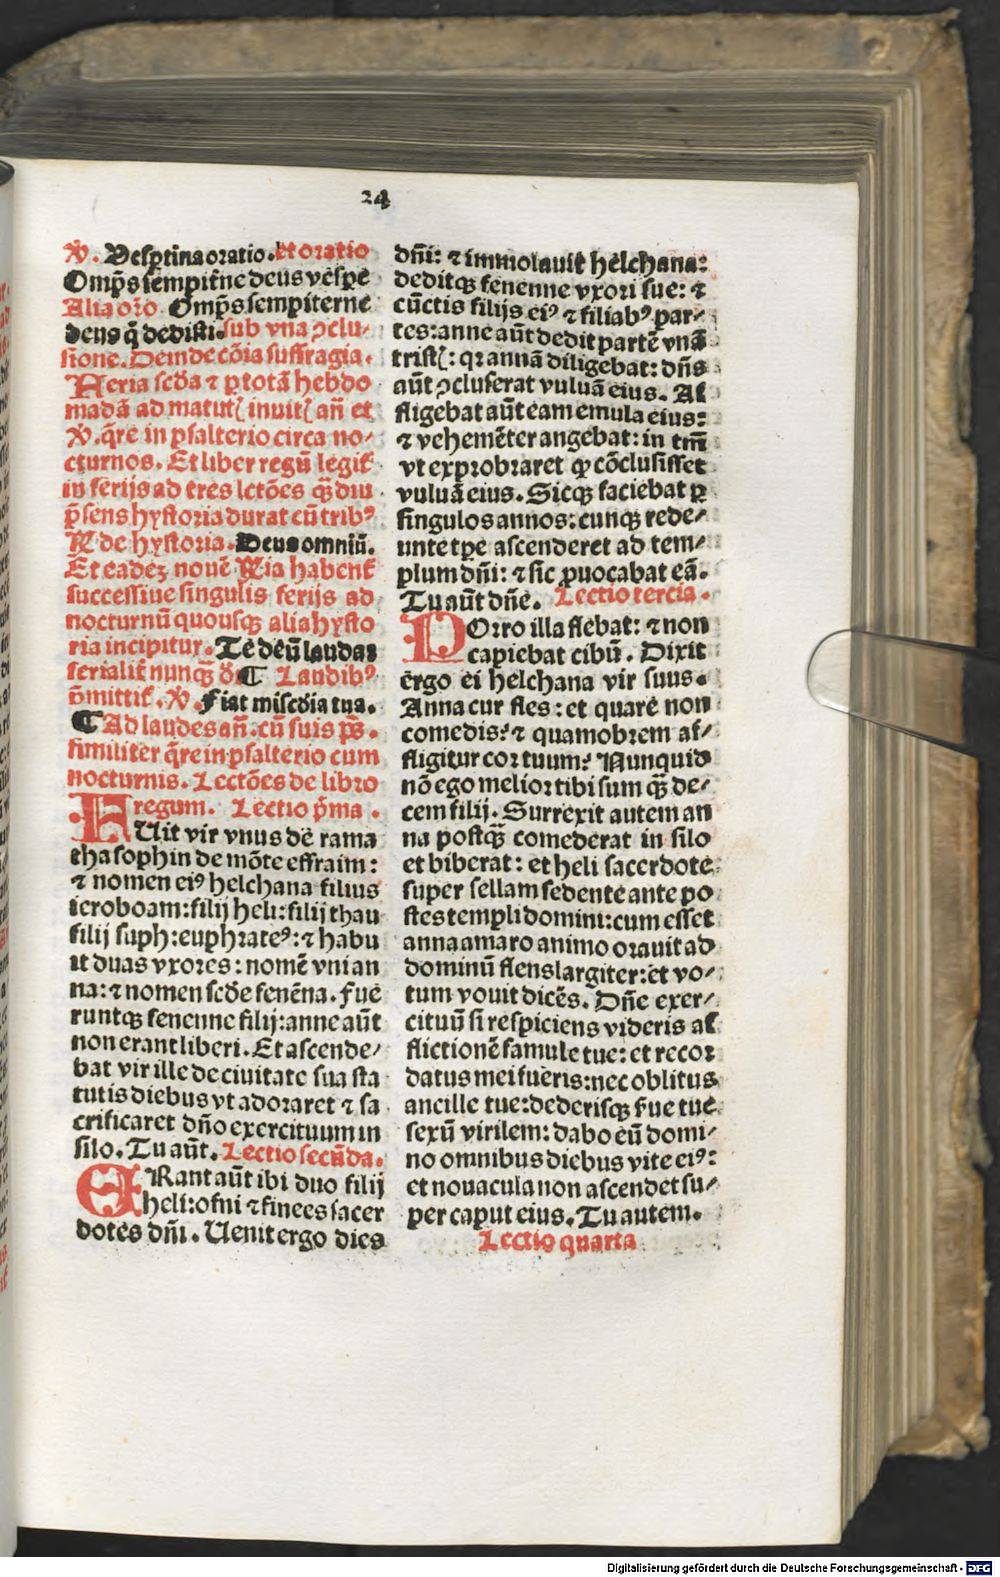 24
℣. Vesꝑtina oratio. Et oratio
Omp̄s sempit̄ne deus vesꝑe
Alia or̄o Omp̄s sempiterne
deus q̄ dedisti. sub vna ꝯclu⸗
sione. Deinde cōia suffragia.
Feria sc̄da ⁊ ꝑ totā hebdo
madā ad matut̄ inuit̄ an̄ et
℣. q̄re in psalterio circa no⸗
cturnos. Et liber regū legit̄
in ferijs ad tres lctōes qꝫ̄ diu
p̄sens hystoria durat cū tribꝰ
℟ de hystoria. Deus omniū.
Et eedeꝫ nouē ℟ia habent̄
successiue singulis ferijs ad
nocturnū quousqꝫ alia hysto
ria incipitur. Te deū laudaꝫ
ferialit̄ nunqꝫ̄ ¶ Laudibꝰ
p̄mittit̄. ℣. Fiat misc̄dia tua.
¶ Ad laudes an̄. cū suis ps̄.
similiter q̄re in psalterio cum
nocturnis. Lectōes de libro
regum. Lectio p̄ma.
FUit vir vnus de rama
tha sophin de mōte effraim:
⁊ nomen eiꝰ helchana filius
ieroboam: filij heli: filij thau
filij suph: euphrateꝰ: ⁊ habu
it duas vxores: nomē vni an
na: ⁊ nomen sc̄de fenēna. Fue
runtqꝫ fenenne filij: anne aūt
non erant liberi. Et ascende⸗
bat vir ille de ciuitate sua sta
tutis diebus vt adoraret ⁊ sa
crificaret dn̄o exercituum in
silo. Tu aūt. Lectio secūda.
ERant aūt ibi duo filij
heli: ofni ⁊ finees sacer
dotes dn̄i. Uenit ergo dies
dn̄i: ⁊ immolauit helchana:
deditqꝫ fenenne vxori sue: ⁊
cūctis filijs eiꝰ ⁊ filiabꝰ par⸗
tes: anne aūt dedit partē vnā
trist̄: qꝛ annā diligebat: dn̄s
aūt ꝯcluserat vuluā eius. Af
fligebat aūt eam emula eius:
⁊ vehemēter angebat: in tm̄
vt exprobraret ꝙ cōclusisset
vuluā eius. Sicqꝫ faciebat ꝑ
singulos annos: cunqꝫ rede⸗
unte tꝑe ascenderet ad tem⸗
plum dn̄i: ⁊ sic ꝓuocabat eā.
Tu aūt dn̄e. Lectio tercia.
POrro illa flebat: ⁊ non
capiebat cibū. Dixit
ergo ei helchana vir suus.
Anna cur fles: et quare non
comedis? ⁊ quamobrem af⸗
fligitur cor tuum? Nunquid
nō ego melior tibi sum qꝫ̄ de⸗
cem filij. Surrexit autem an
na postqꝫ̄ comederat in silo
et biberat: et heli sacerdote
super sellam sedente ante po
stes templi domini: cum esset
anna amaro animo orauit ad
dominū flens largiter: et vo⸗
tum vouit dicēs. Dn̄e exer⸗
cituū si respiciens videris af
flictionē famule tue: et recor
datus mei fueris: nec oblitus
ancille tue: dederisqꝫ fue tue
sexū virilem: dabo eū domi⸗
no omnibus diebus vite eiꝰ:
et nouacula non ascendet su⸗
per caput eius. Tu autem.
Lectio quarta
Digitalisierung gefördert durch die Deutsche Forschungsgemeinschaft - DFG